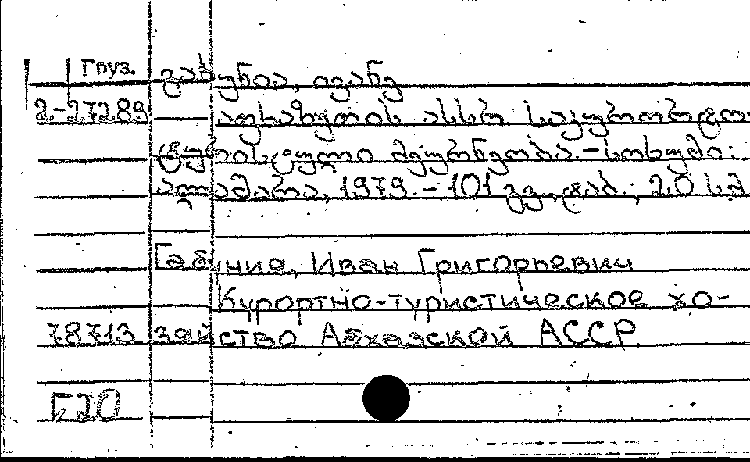 Груз. გაბუნია, ივანე
2-27289 აფხაზეთის ასსრ საკურორტო-
ტურისტული მეურნეობა.-სოხუმი:
ალაშარა, 1979.-101 გვ., ტაბ.; 20 სმ
Габуния, Иван Григорьевич
Курортно-туристическое хо-
78713 зяйство Абхазской АССР
Г20